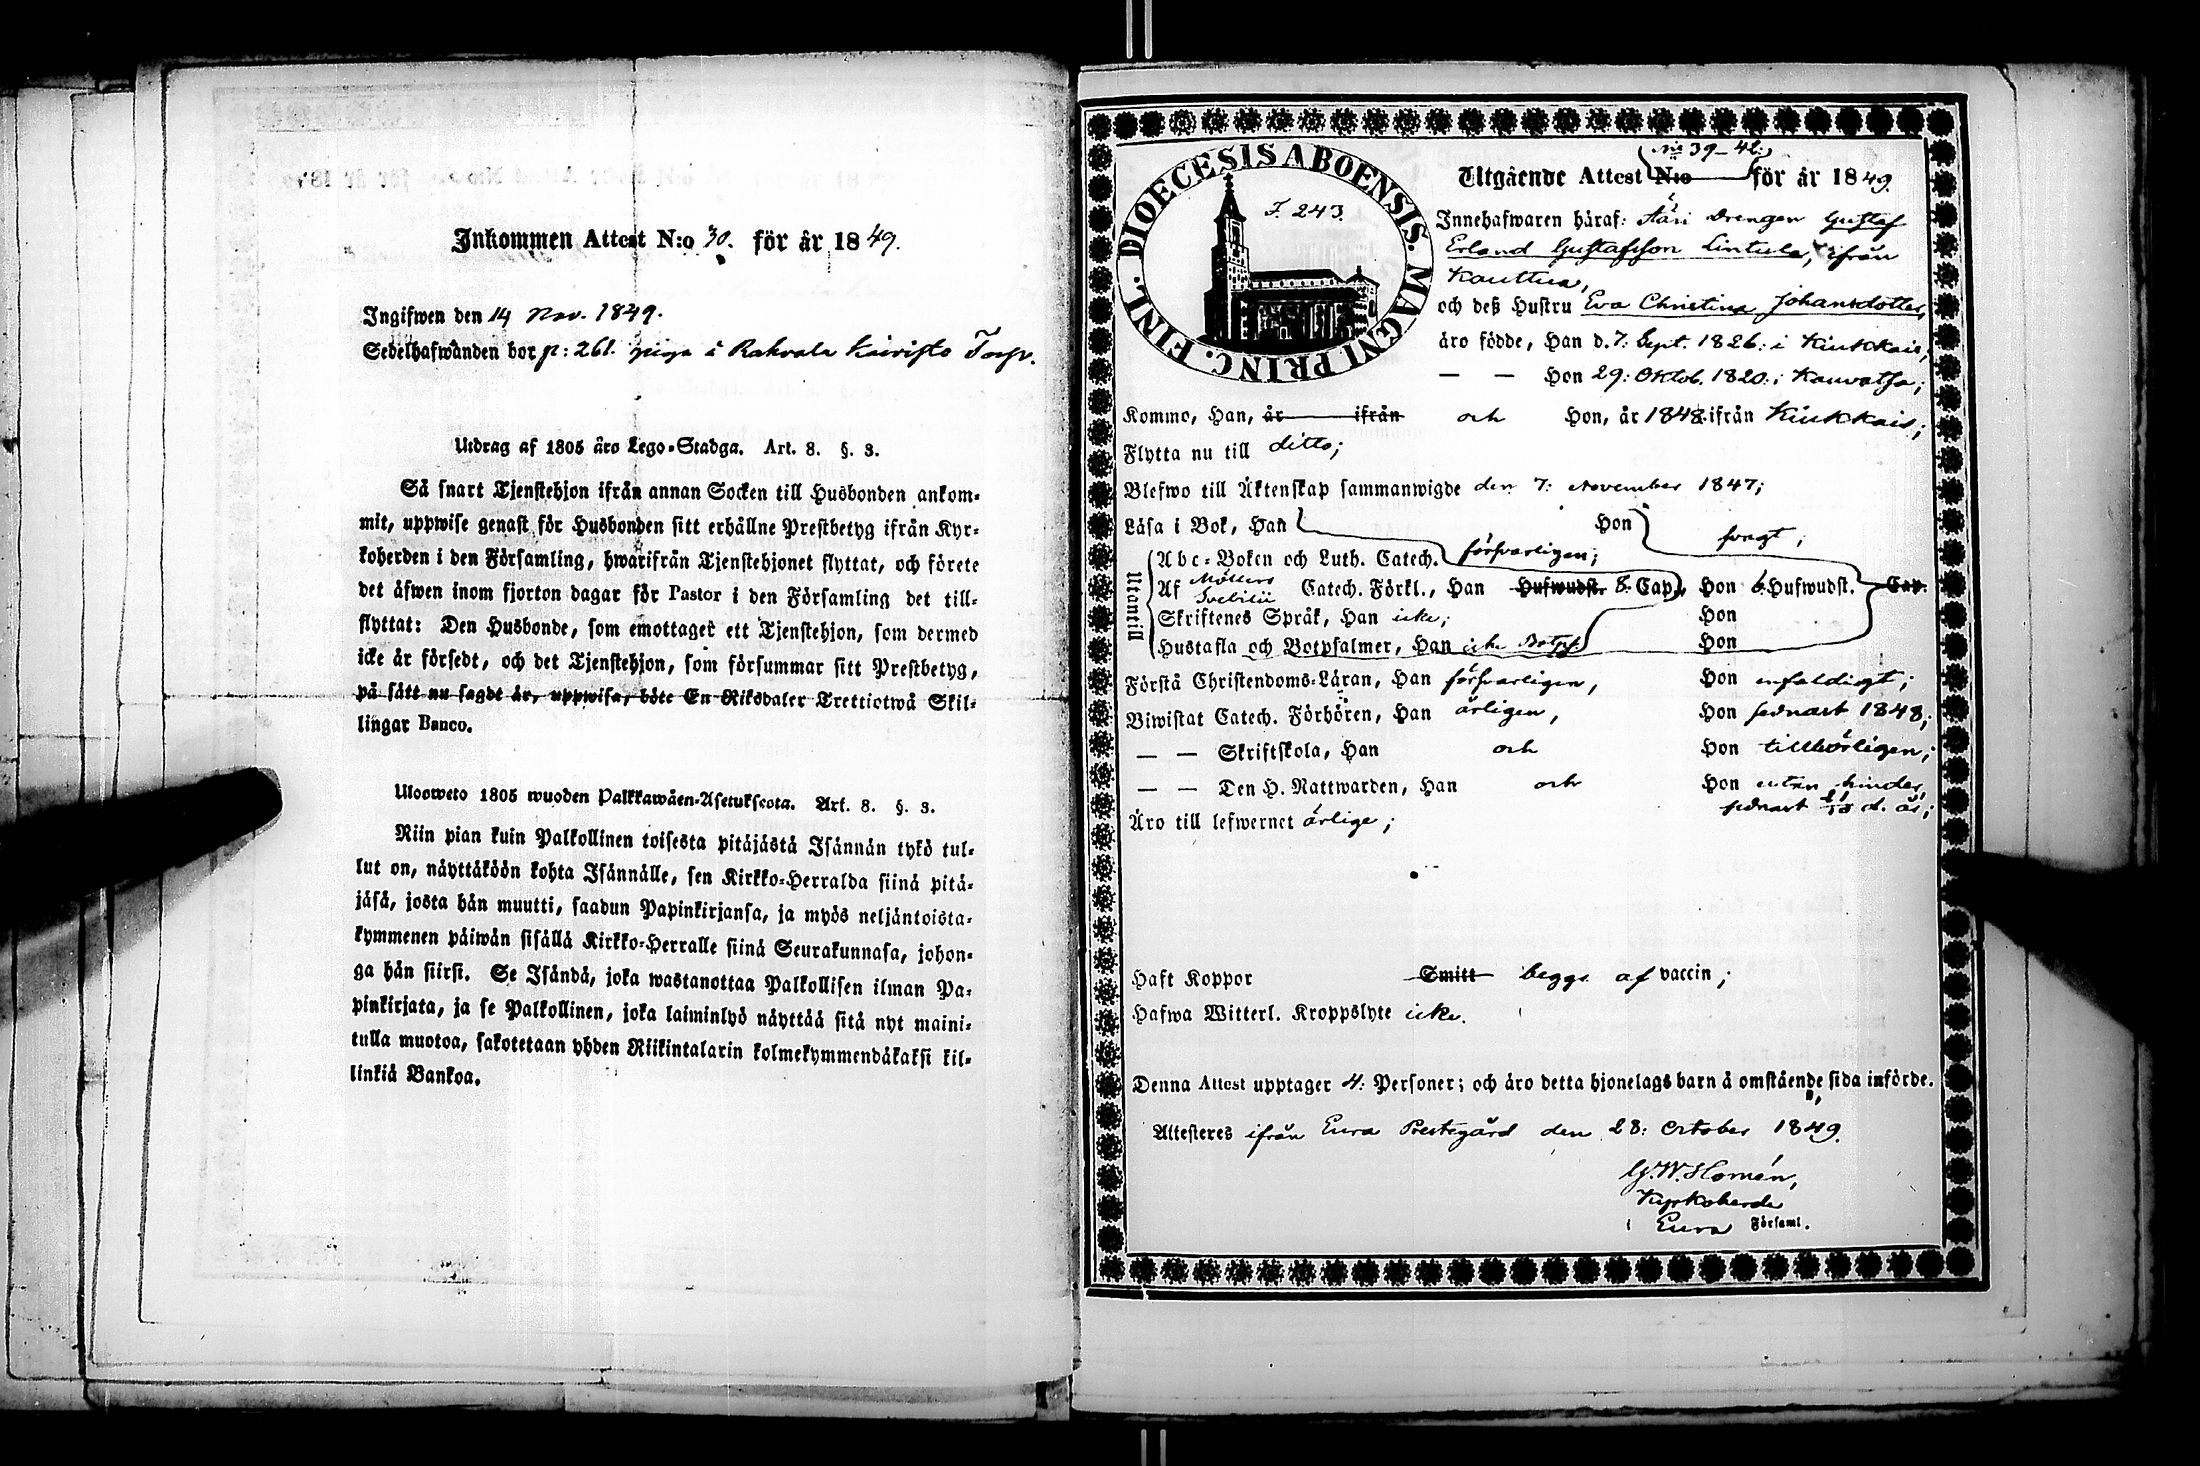 Inkommen Attest N:o 30. för år 1849.
Ingifwen den 14 Nov. 1849.
Sedelhafwanden bor p: 261. piga å Rakvala Kaivisto Torp.
Utdrag af 1805 års Lego-Stadga. Art. 8. §. 3.
Så snart Tjenstehjon ifrån annan Socken till Husbonden ankom-
mit, uppwise genast för Husbonden sitt erhållne Prestbetyg ifrån Kyr-
koherden i den Församling, hwarifrån Tjenstehjonet flyttat, och förete
det äfwen inom fjorton dagar för Pastor i den Församling det till-
flyttat: Den Husbonde, som emottager ett Tjenstehjon, som dermed
icke är försedt, och det Tjenstehjon, som försummar sitt Prestbetyg,
på sätt nu sagdt är, uppwisa, böte En Riksdaler Trettiotwå Skil-
lingar Banco.
Ulosweto 1805 wuoden Palkkawäen-Asetuksesta. Art. 8. §. 3.
Niin pian kuin Palkollinen toisesta pitäjästä Isännän tykö tul-
lut on, näyttäköön kohta Isännälle, sen Kirkko-Herralda siinä pitä-
jäsä, josta hän muutti, saadun Papinkirjansa, ja myös neljäntoista-
kymmenen päiwän sisällä Kirkko-Herralle siinä Seurakunnasa, johon-
ga hän siirsi. Se Isändä, joka wastanottaa Palkollisen ilman Pa-
pinkirjata, ja se Palkollinen, joka laiminlyö näyttää sitä nyt maini-
tulla muotoa, sakotetaan yhden Riikintalarin kolmekymmendäkaksi kil-
linkiä Bankoa.
DIOECESIS ABOENSIS. MAGNI PRINC. FINL.
F. 243.
No 39-42.
Utgående Attest N:o för år 1849
Innehafwaren häraf: Äro Drengen Gustaf
Erland Gustafsson Lintula, ifrån
Kauttua,
och deß Hustru Eva Christina Johansdotter,
äro födde, Han d. 7: Sept. 1826: i Kiukkais,
— — Hon 29: Oktob. 1820: i Kauvatsa;
Kommo, Han, år ifrån och Hon, år 1848 ifrån Kiukkais;
Flytta nu till ditto;
Blefwo till Äktenskap sammanwigde den 7: November 1847;
Läsa i Bok, Han Hon svagt;
Utantill
Abc-Boken och Luth. Catech. försvarligen;
Af Möllers Svebilii Catech. Förkl., Han Hufwudst. 8. Cap., Hon 6. Hufwudst. Cap.
Skriftenes Språk, Han icke; Hon
Hustafla och Botpsalmer, Han icke Botps. Hon
Förstå Christendoms-Läran, Han försvarligen, Hon enfaldigt;
Biwistat Catech. Förhören, Han årligen, Hon sednast 1848;
— — Skriftskola, Han och Hon tillbörligen;
— — Den H. Nattwarden, Han och Hon utan hinder,
sednast d. år;
Äro till lefwernet ärlige;
Haft Koppor Smitt begge af vaccin;
Hafwa Witterl. Kroppslyte icke.
Denna Attest upptager 4: Personer; och äro detta hjonelags barn å omstående sida införde.
Attesteres ifrån Eura Prestegård den 28: October 1849.
G. W. Homén,
Kyrkoherde
i Eura Församl.